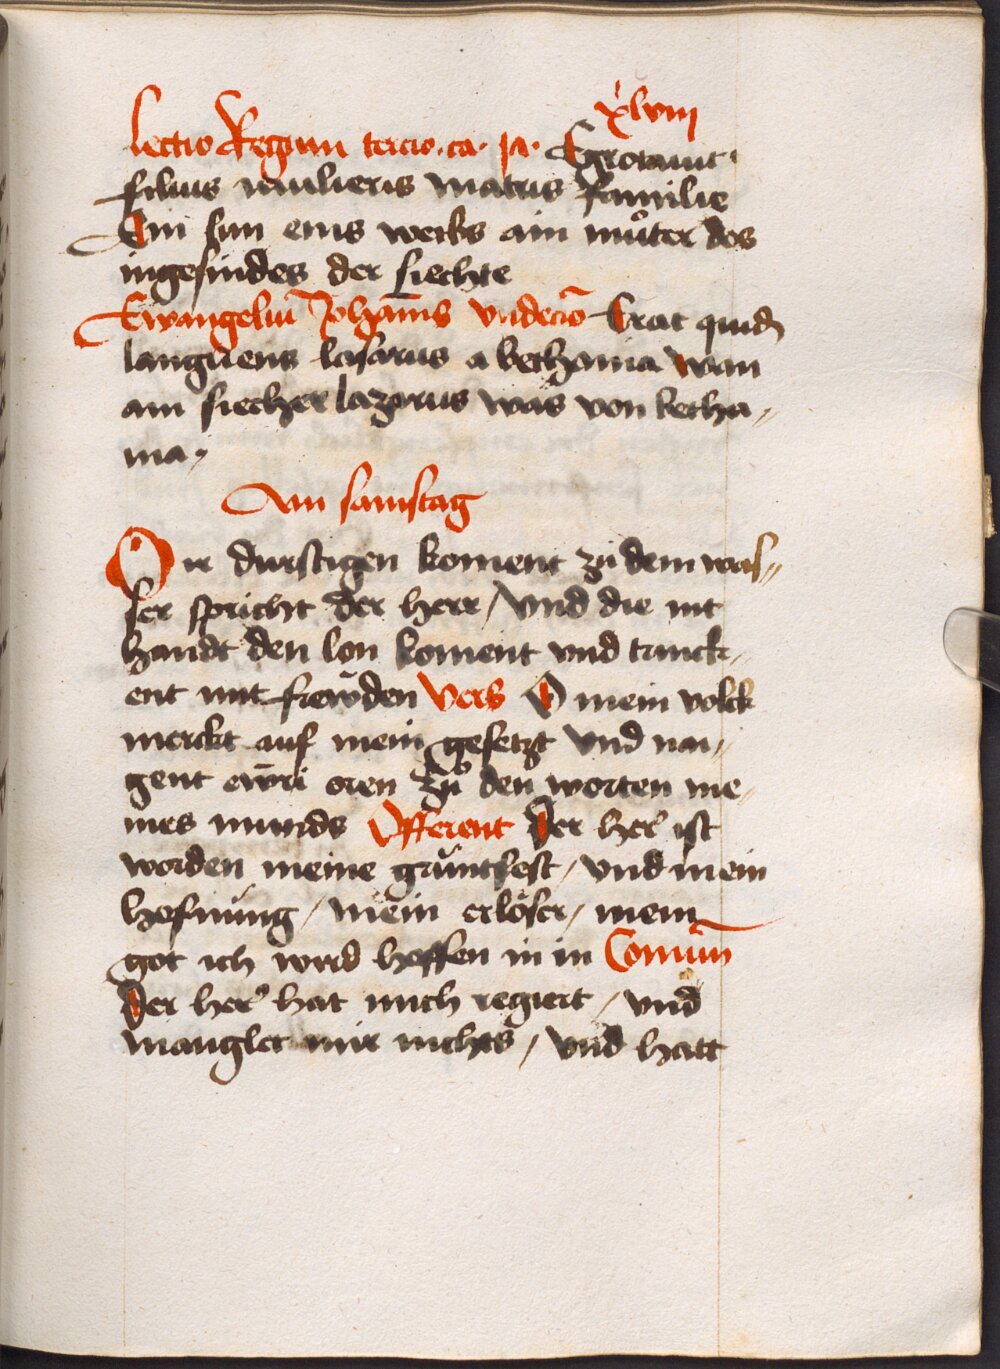 xlviii
Lectio Regum tercio · ca · ja · Egrotauit
filius mulieris matris familie
Ain sun eins weibs ain můter des
ingesindes der siechte
Ewangeliū Johan̄is vndecīo Erat quidā
languens lasarus a bethania wan
ain siecher lazarus was von betha„
nia ·
Am samstag
O ir durstigen koment zů dem was„
ser spricht der herr / vnd die nit
handt den lon koment vnd trinck„
ent mit frewden Vers O mein volck
merckt auf mein gesetzt vnd nai„
gent ewri oren zů den worten mei„
nes munds Offerent Der her' ist
worden meine gruntfest / vnd mein
hofnung / mein erlöser / mein
got ich wird hoffen in in Comuīn
Der her' hat mich regiert / vnd
manglet mir nichts / vnd hatt